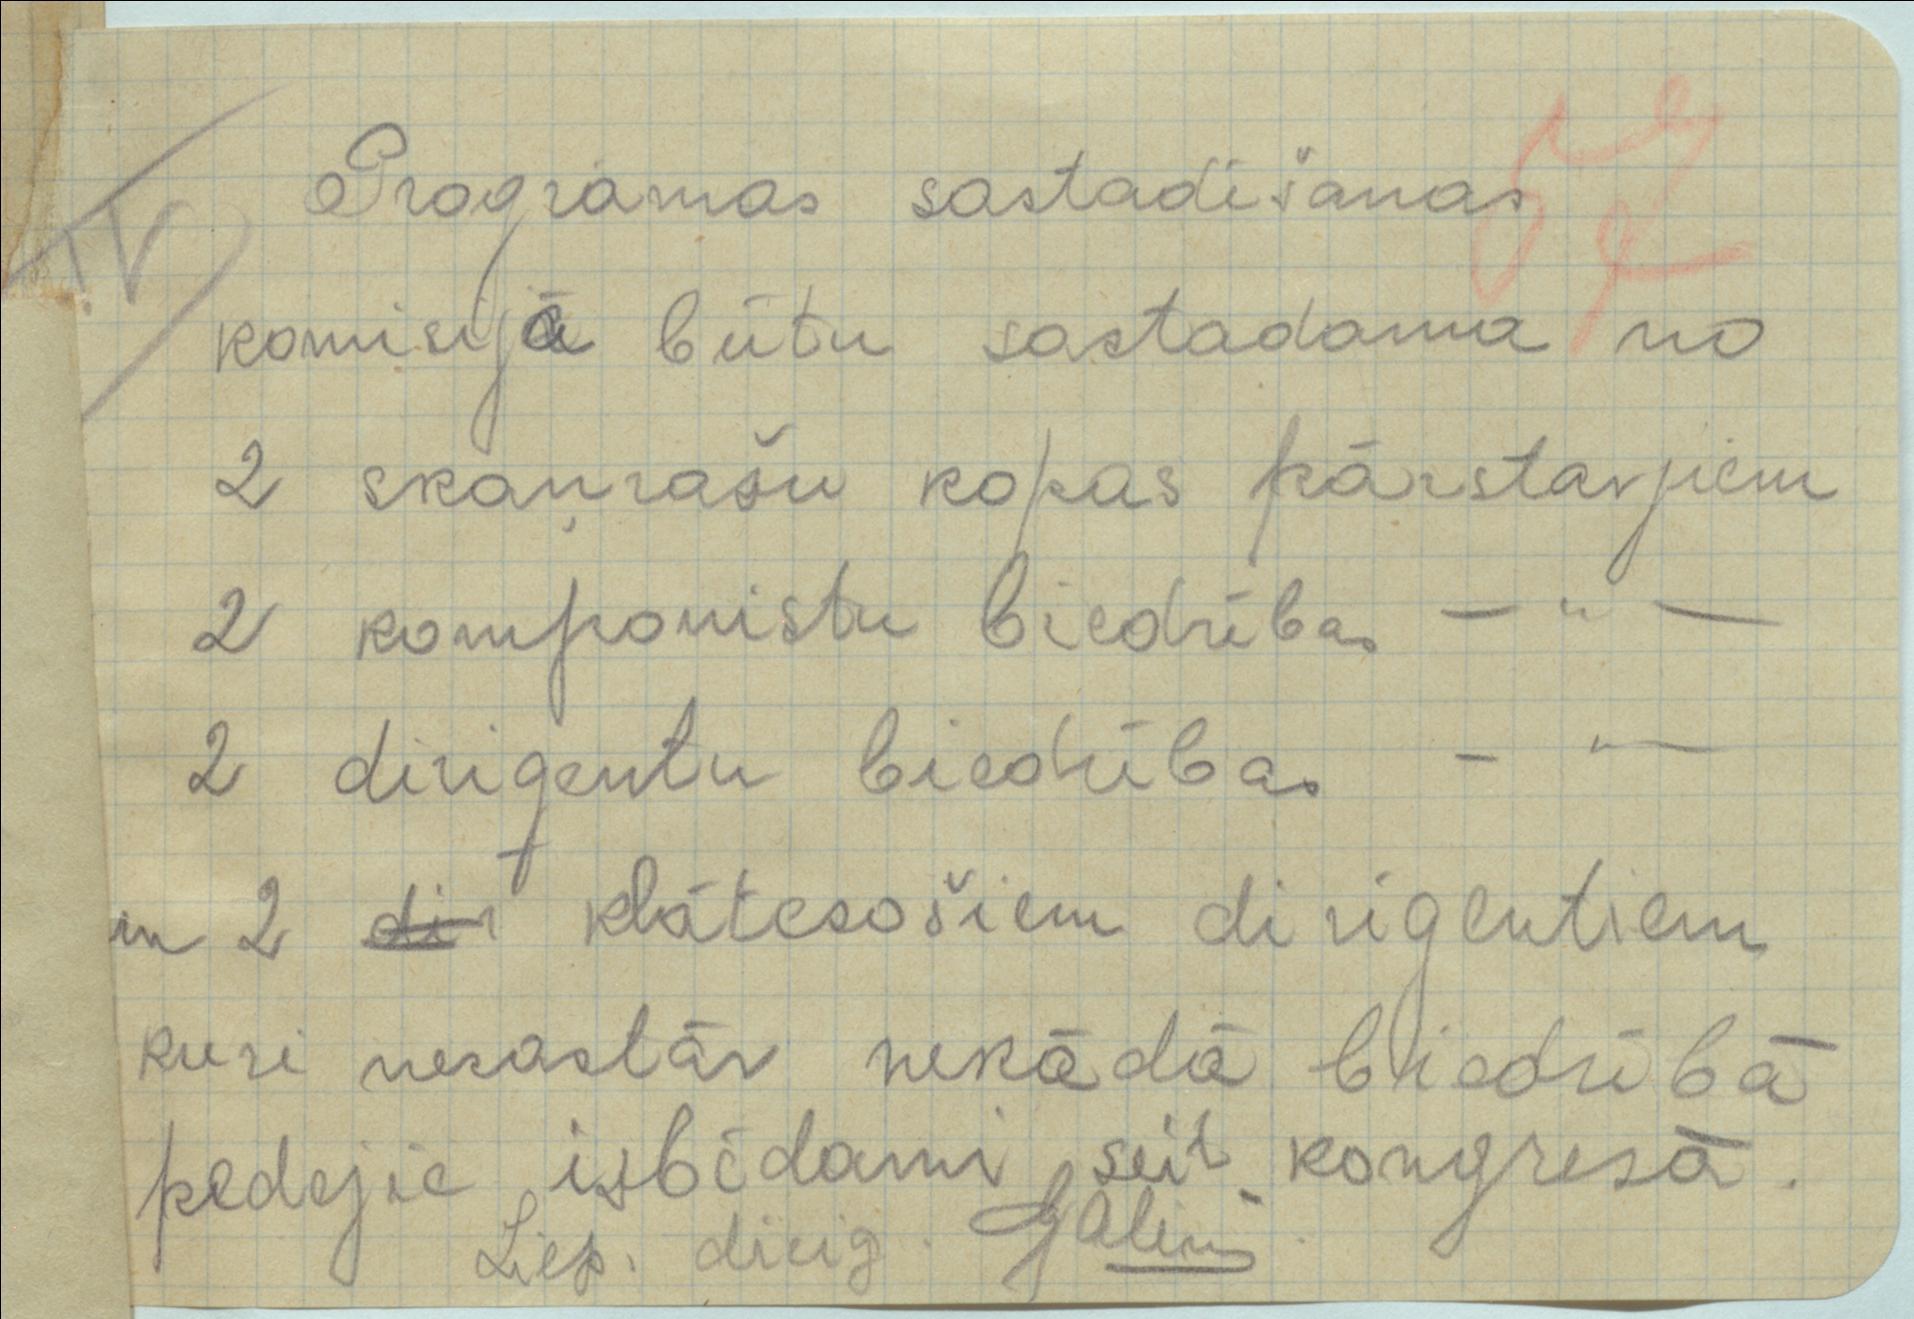 IV
Programas sastadišanas
komisijā būtu sastadama no
2 skaņrašu kopas pārstavjiem
2 komponistu biedrības — " —
2 dirigentu biedrības - " —
un 2 dir klātesošiem dirigentiem
kuri nesastāv nekādā biedrībā
pedejie isbīdami šeit kongresā.
Liep. dirig. Galiņ